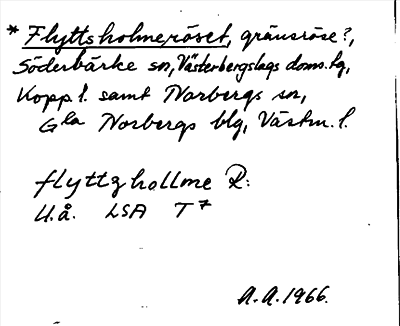 * Flyttsholme,röset, gränsröse?,
Söderbärke sn, Västerbergslags doms. hg,
Kopp. l. samt Norbergs sn,
Gla Norbergs blg, Västm. l.
flyttzhollme R:
U.å. LSA T7
A.A. 1966.